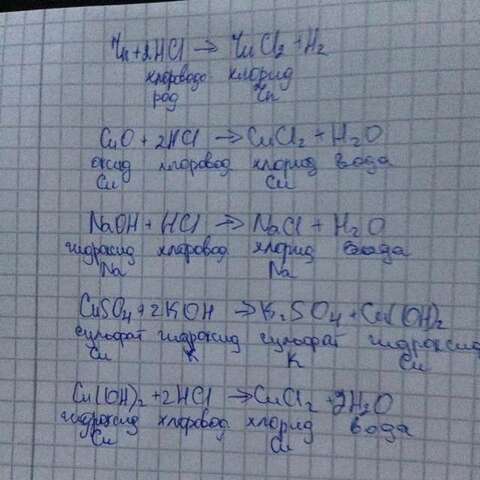 Zn + 2HCl → ZnCl2 + H2
хлоровадо хлорид
род Zn
CuO + 2HCl → CuCl2 + H2O
оксид хлоровод хлорид вода
Cu Cu
NaOH + HCl → NaCl + H2O
гидроксид хлоровод хлорид вода
Na Na
CuSO4 + 2KOH → K2SO4 + Cu(OH)2
сульфат гидроксид сульфат гидроксид
Cu K K Cu
Cu(OH)2 + 2HCl → CuCl2 + 2H2O
гидроксид хлоровод хлорид вода
Cu Cu